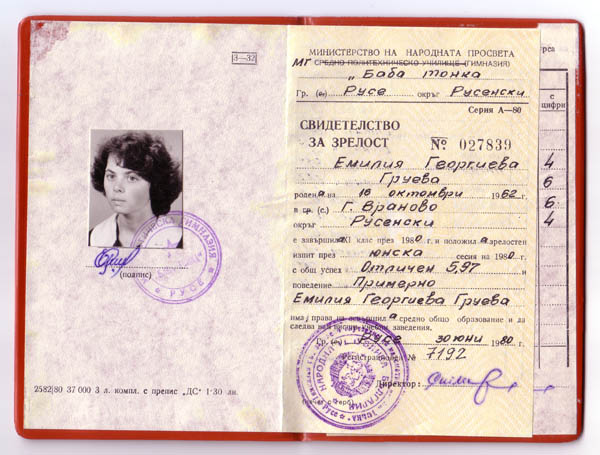 3—32
(подпис)
2582|80 37 000 3 л. компл. с препис „ДС" 1·30 лв.
МИНИСТЕРСТВО НА НАРОДНАТА ПРОСВЕТА
МГ СРЕДНО ПОЛИТЕХНИЧЕСКО УЧИЛИЩЕ (ГИМНАЗИЯ)
„Баба Тонка
Гр. (с.) Русе окръг Русенски
Серия А—80
СВИДЕТЕЛСТВО
ЗА ЗРЕЛОСТ № 027839
Емилия Георгиева
Груева
родена на 16 октомври 1962 г.
в гр. (с.) Г. Враново
окръг Русенски
е завършила XI клас през 1980 г. и положила зрелостен
изпит през юнска сесия на 1980 г.
с общ успех Отличен 5,97 и
поведение Примерно
Емилия Георгиева Груева
има права на завършила средно общо образование и да
следва във висши учебни заведения.
Гр. (с.) Русе 30 юни 1980 г.
Регистрационен № 7192
Директор:
рса
с
цифри
4
6
6
4